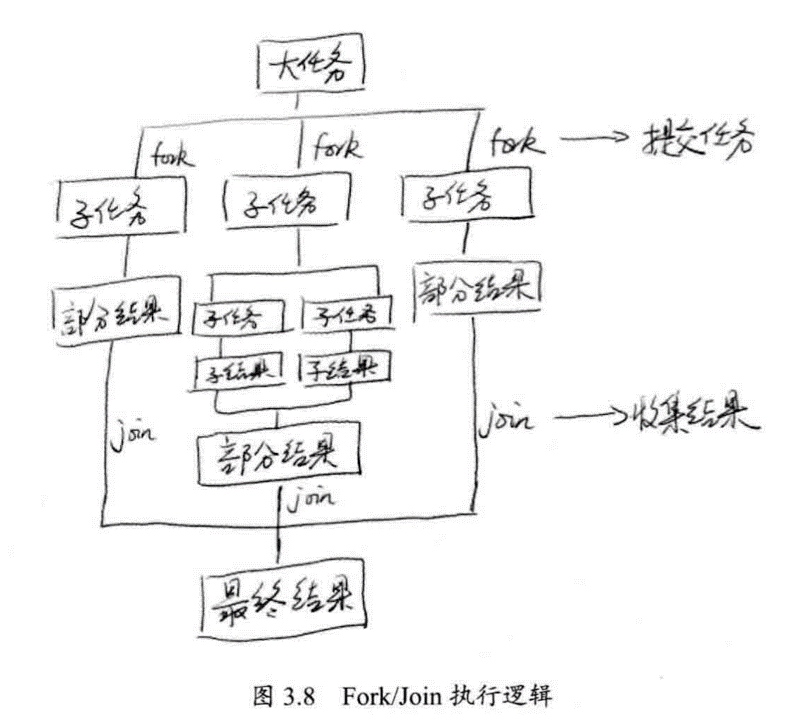 大任务
fork fork fork → 提交任务
子任务 子任务 子任务
部分结果 部分结果
子任务 子任务
子结果 子结果
join join → 收集结果
部分结果
join
最终结果
图 3.8 Fork/Join 执行逻辑